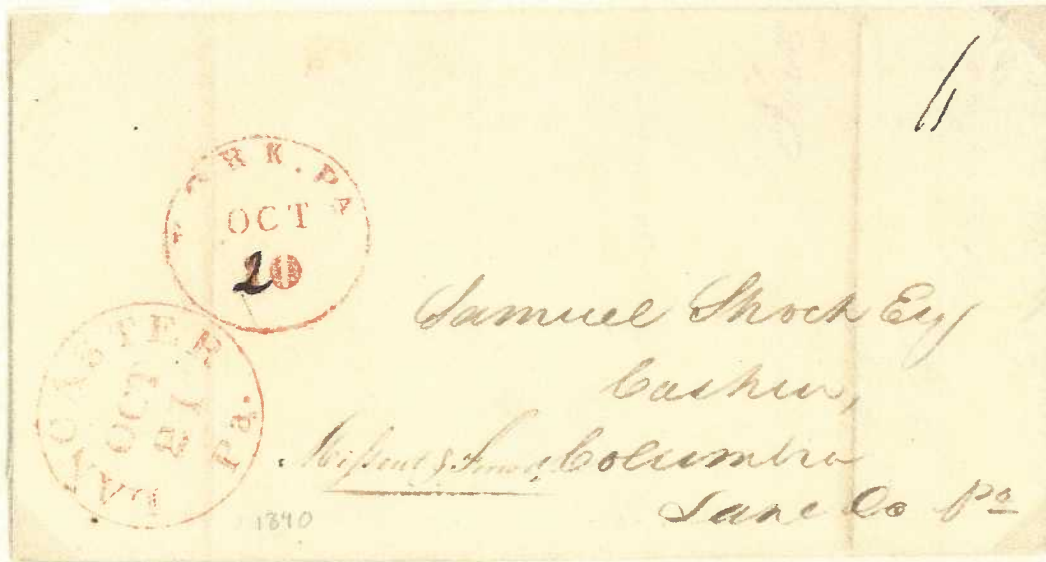 6
YORK. PA
OCT
20
LANCASTER Pa.
OCT
21
Samuel Shoch Esq
Cashier,
Missent & Forwd, Columbia
Lanc Co Pa
1840